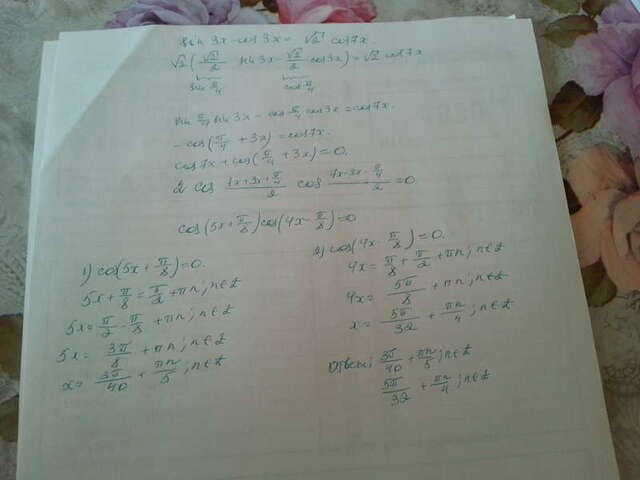 sin 3x - cos 3x = √2 cos 7x.
√2 (√2/2 sin 3x - √2/2 cos 3x) = √2 cos 7x
sin π/4 cos π/4
sin π/4 sin 3x - cos π/4 cos 3x = cos 7x.
- cos(π/4 + 3x) = cos 7x.
cos 7x + cos(π/4 + 3x) = 0.
2 cos (7x + 3x + π/4)/2 cos (7x - 3x - π/4)/2 = 0.
cos(5x + π/8) cos(4x - π/8) = 0
1) cos(5x + π/8) = 0.
5x + π/8 = π/2 + πn; n∈Z
5x = π/2 - π/8 + πn; n∈Z
5x = 3π/8 + πn; n∈Z
x = 3π/40 + πn/5; n∈Z
2) cos(4x - π/8) = 0.
4x = π/8 + π/2 + πn; n∈Z
4x = 5π/8 + πn; n∈Z
x = 5π/32 + πn/4; n∈Z
Ответ: 3π/40 + πn/5; n∈Z
5π/32 + πn/4; n∈Z